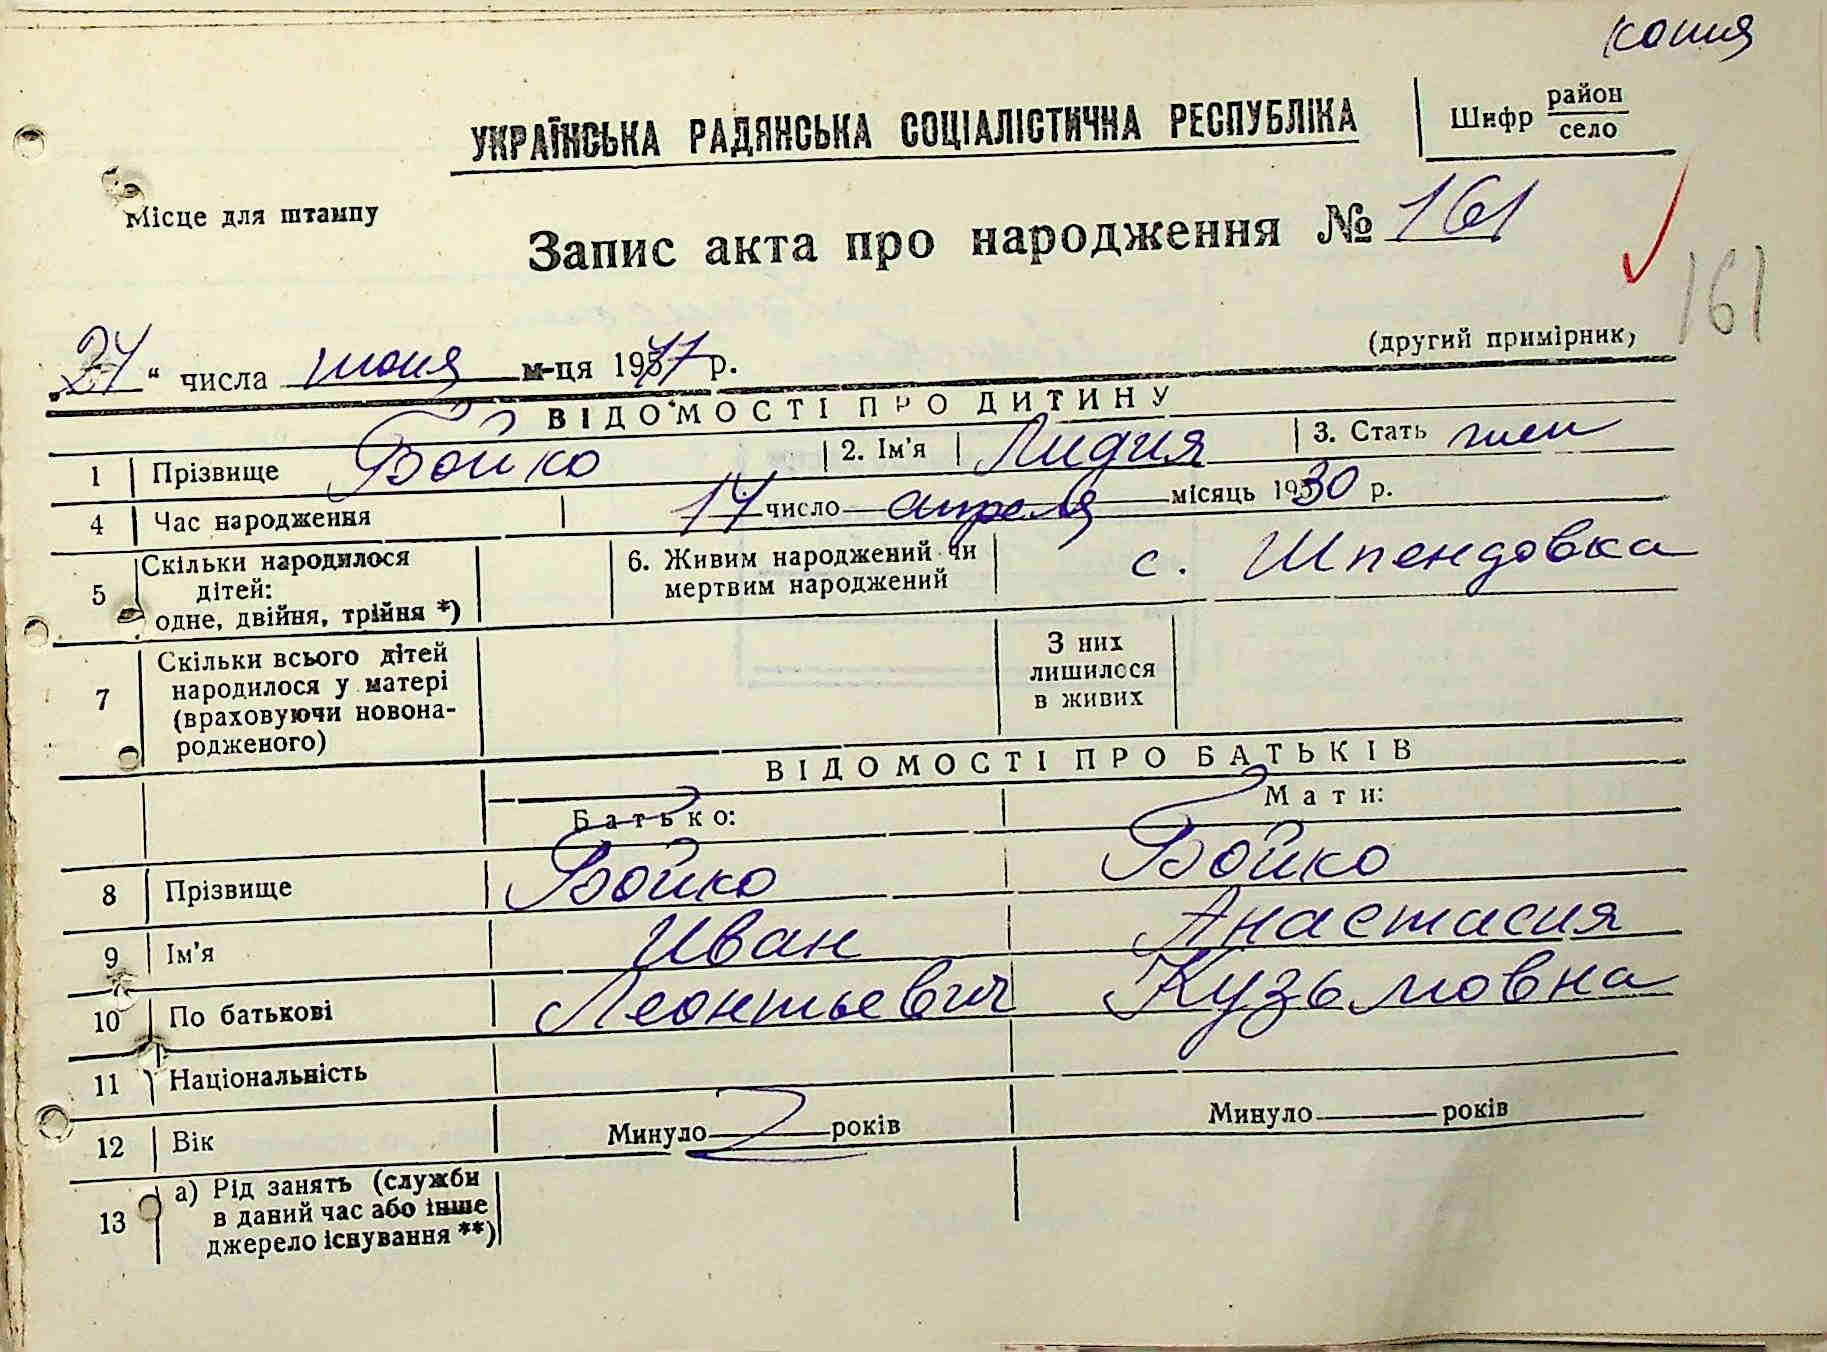 копия
УКРАЇНСЬКА РАДЯНСЬКА СОЦІАЛІСТИЧНА РЕСПУБЛІКА
Шифр район
село
Місце для штампу
Запис акта про народження № 161
161
(другий примірник)
" числа июня м-ця 1977 р.
ВІДОМОСТІ ПРО ДИТИНУ
1 Прізвище Бойко 2. Ім'я Лидия 3. Стать жен
4 Час народження 14 число апреля місяць 1930 р.
5 Скільки народилося дітей: одне, двійня, трійня *) 6. Живим народжений чи мертвим народжений с. Шпендовка
7 Скільки всього дітей народилося у матері (враховуючи новонародженого) З них лишилося в живих
ВІДОМОСТІ ПРО БАТЬКІВ
Батько: Мати:
8 Прізвище Бойко Бойко
9 Ім'я Иван Анастасия
10 По батькові Леонтьевич Кузьмовна
11 Національність
12 Вік Минуло років Минуло років
13 а) Рід занять (служби в даний час або інше джерело існування **)